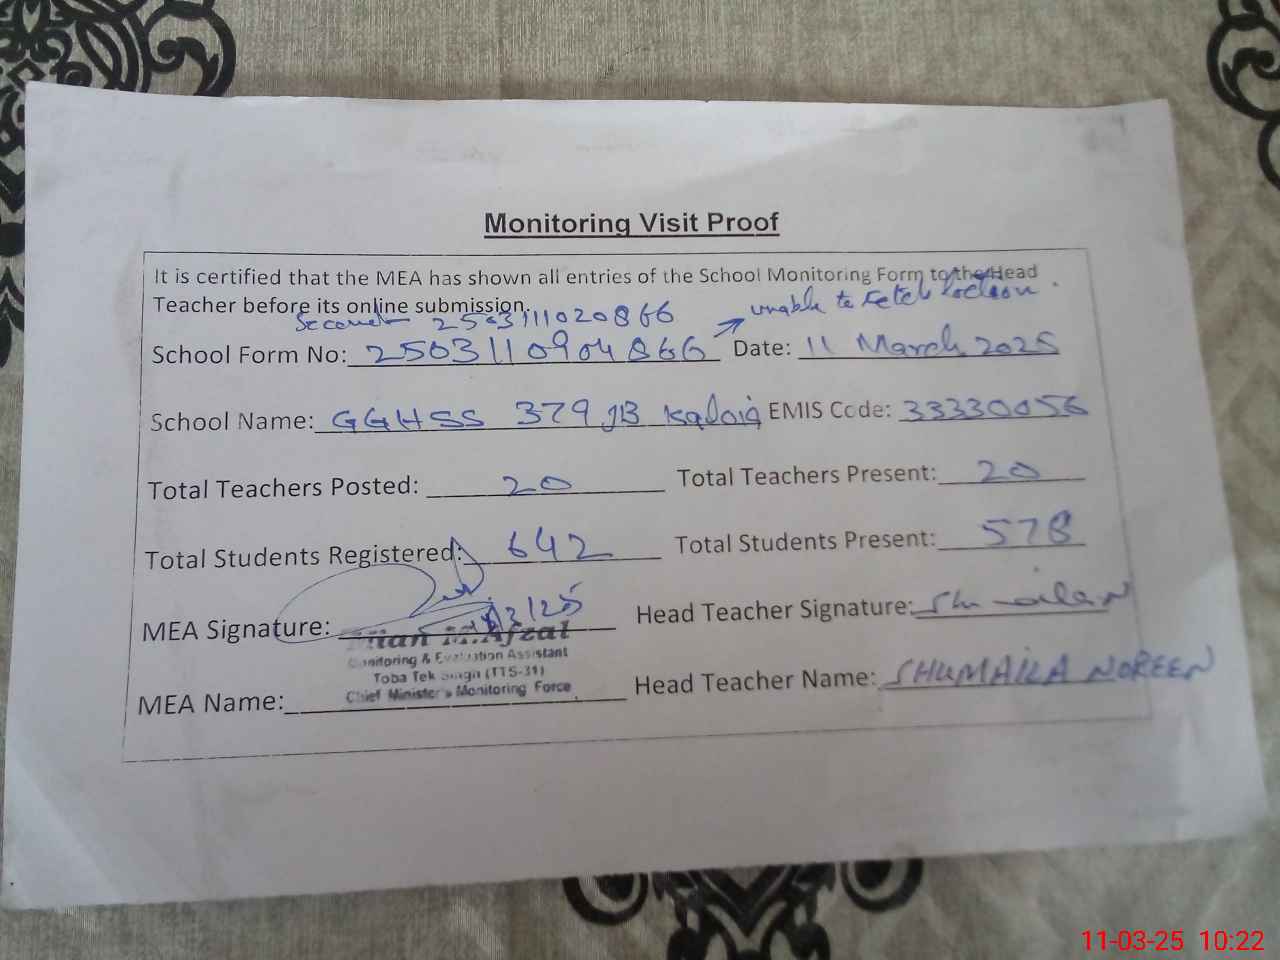 Monitoring Visit Proof
It is certified that the MEA has shown all entries of the School Monitoring Form to the Head
Teacher before its online submission.
unable to fetch location.
Second 2503111020866
School Form No: 2503110904866 Date: 11 March 2025
School Name: GGHSS 379 JB Kaloia EMIS Code: 33330056
Total Teachers Posted: 20 Total Teachers Present: 20
Total Students Registered: 642 Total Students Present: 578
MEA Signature: Head Teacher Signature:
Mian M.Afzal
Monitoring & Evaluation Assistant
Toba Tek Singh (TTS-31)
Chief Minister's Monitoring Force
MEA Name: Head Teacher Name: SHUMAILA NOREEN
11-03-25 10:22